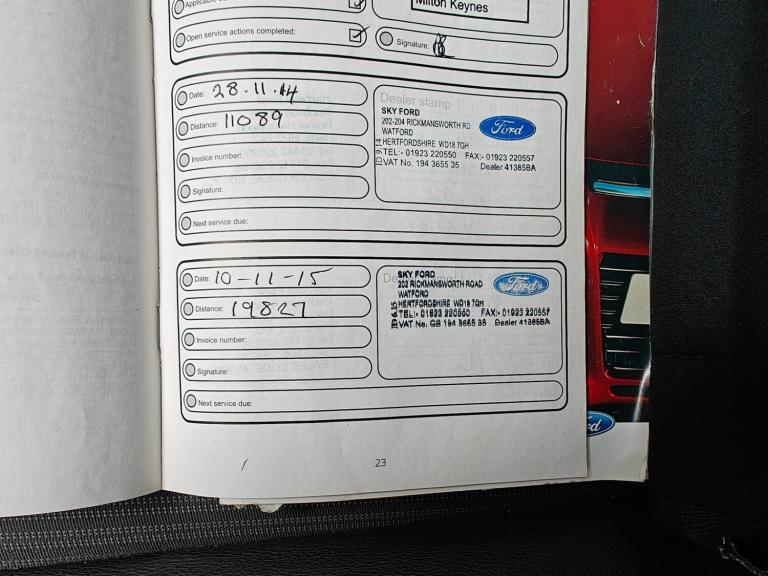 Applicable
Milton Keynes
Open service actions completed:
Signature:
Date: 28.11.14
Dealer stamp
SKY FORD
202-204 RICKMANSWORTH RD
WATFORD
HERTFORDSHIRE WD18 7GH
TEL:- 01923 220550 FAX:- 01923 220557
VAT No. 194 3655 35 Dealer 41385BA
Ford
Distance: 11089
Invoice number:
Signature:
Next service due:
Date: 10-11-15
SKY FORD
202 RICKMANSWORTH ROAD
WATFORD
HERTFORDSHIRE WD18 7GH
TEL:- 01923 220550 FAX:- 01923 220557
VAT No. GB 194 3665 35 Dealer 41385BA
Ford
Distance: 19827
Invoice number:
Signature:
Next service due:
23